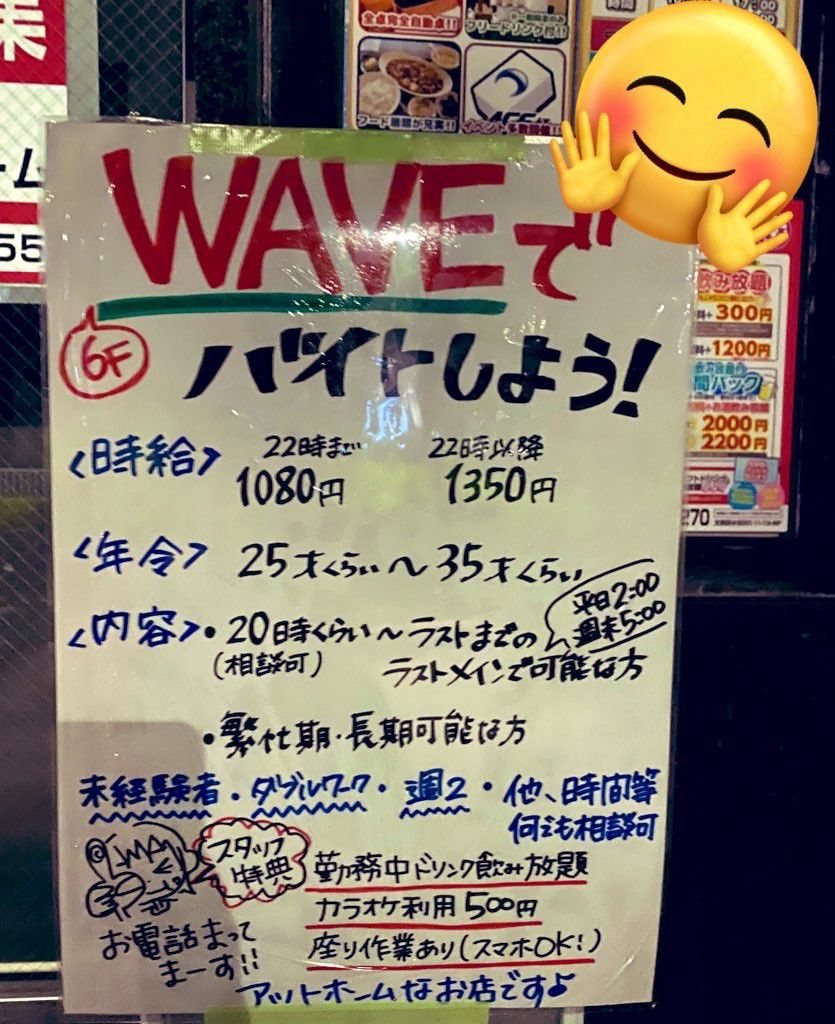 全点完全自動点!!
フリードリンク付!!
フード種類が充実!!
イベント多数開催!!
WAVEで
6F
バイトしよう!
<時給>
22時まで
1080円
22時以降
1350円
<年令>
25才くらい〜35才くらい
<内容>
・20時くらい〜ラストまでの
(相談可)
ラストメインで可能な方
平日2:00
週末5:00
・繁忙期・長期可能な方
未経験者・ダブルワーク・週2・他、時間等
何でも相談可
スタッフ
特典
勤務中ドリンク飲み放題
カラオケ利用500円
座り作業あり(スマホOK!)
お電話まって
まーす!!
アットホームなお店です♪
業
ーム
55
飲み放題
300円
+1200円
間パック
2000円
2200円
270